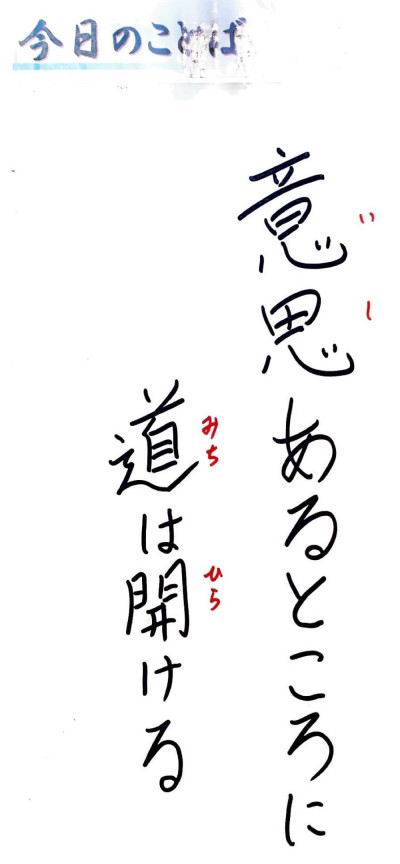 今日のことば
意思あるところに
いし
道は開ける
みち
ひら